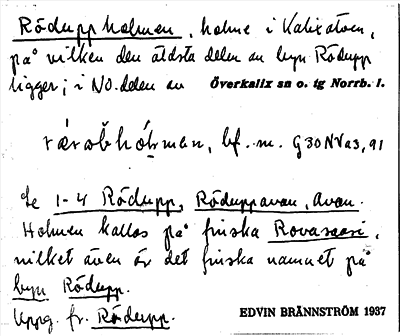 Rödupp holmen, holme i Kalixälven,
på vilken den äldsta delen av byn Rödupp
ligger; i NO. delen av Överkalix sn o. tg Norrb. l.
bf. m. G30NVa3,91
Se 1-4 Rödupp, Röduppavan, Avan.
Holmen kallas på finska Rovasaari,
vilket även är det finska namnet på
byn Rödupp.
Uppg. fr. Rödupp.
EDVIN BRÄNNSTRÖM 1937